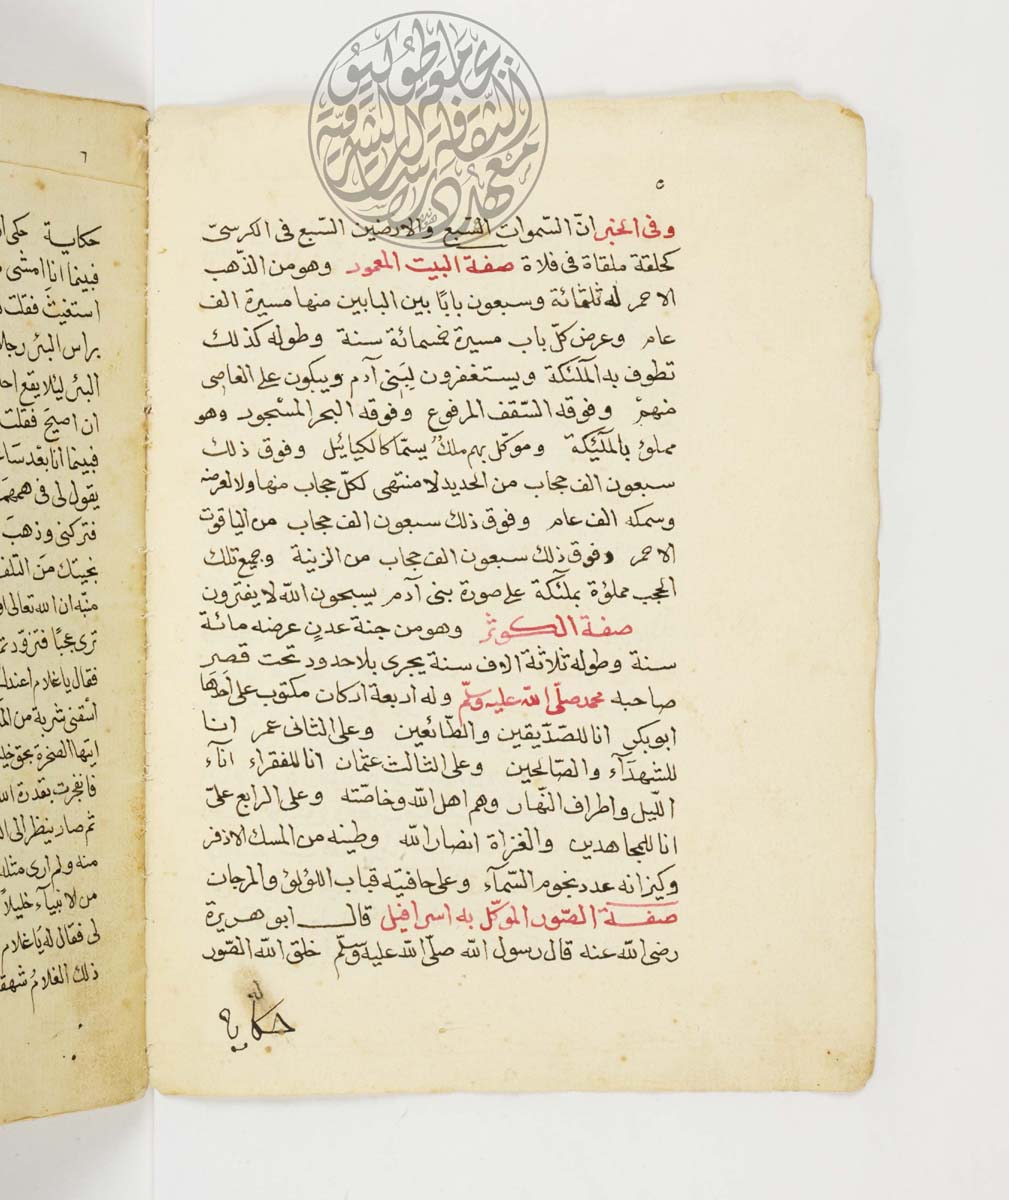 ٥
وفى الخبر انّ السّموات السّبع والارضين السّبع فى الكرسىّ
كحلقة ملقاة فى فلاة صفة البيت المعمور وهو من الذّهب
الاحمر له ثلثمائة وسبعون بابًا بين البابين منها مسيرة الف
عام وعرض كلّ باب مسيرة خمسمائة سنة وطوله كذلك
تطوف به الملٓئكة ويستغفرون لبنى آدم ويبكون على العاصى
منهم وفوقه السّقف المرفوع وفوقه البحر المسجور وهو
مملوٌ بالملٓئكة وموكّل بهم ملكٌ يسمّا كالكيائيل وفوق ذلك
سبعون الف حجاب من الحديد لا منتهى لكلّ حجاب منها ولا لعرضه
وسمكه الف عام وفوق ذلك سبعون الف حجاب من الياقوت
الاحمر وفوق ذلك سبعون الف حجاب من الزينة وجميع تلك
الحجب مملؤة بملٓئكة على صورة بنى آدم يسبحون الله لا يفترون
صفة الكوثر وهو من جنة عدن عرضه مائة
سنة وطوله ثلاثة الاف سنة يجرى بلا حدود تحت قصر
صاحبه محمد صلّى الله عليه وسلّم وله اربعة اركان مكتوب على احدها
ابو بكر انا للصّدّيقين والطّائعين وعلى الثانى عمر انا
للشهدآء والصّالحين وعلى الثالث عثمان انا للفقراء اناء
اللّيل واطراف النّهار وهم اهل الله وخاصّته وعلى الرابع علىّ
انا للمجاهدين والغزاة انصار الله وطينه من المسك الاذفر
وكيزانه عدد نجوم السّمآء وعلى حافتيه قباب اللؤلؤ والمرجان
صفة الصّور الموكّل به اسرافيل قال ابو هريرة
رضى الله عنه قال رسول الله صلّى الله عليه وسلّم خلق الله الصّور
حكاية
٦
حكاية حكى
فبينما انا امشى
استغيث فقلت
براس البئر رجلا
البئر ليلا يقع
ان اصيح فقلت
فبينما انا بعد
يقول لى فى
فتركنى وذهب
نجيتك من التلف
منبّه ان الله تعالى
ترى عجبًا فتزوّد
فقال يا غلام
اسقنى شربة من
ايتها الصخرة بحق
فانفجرت بقدرة
ثم صار ينظر الى
منه ولم ارى مثله
من الانبيآء خليلاً
لى فقال له يا غلام
ذلك الغلام